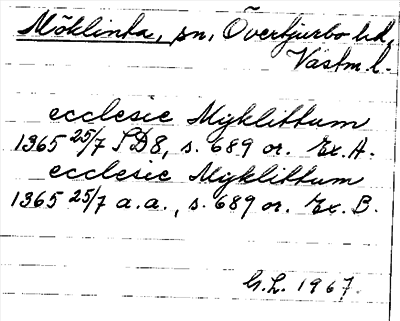 Möklinta, sn, Övertjurbo hd,
Västm. l.
ecclesie Myklittum
1365 25/7 SD 8, s. 689 or. Ex. A.
ecclesie Myklittum
1365 25/7 a.a., s. 689 or. Ex. B.
G.L. 1967.